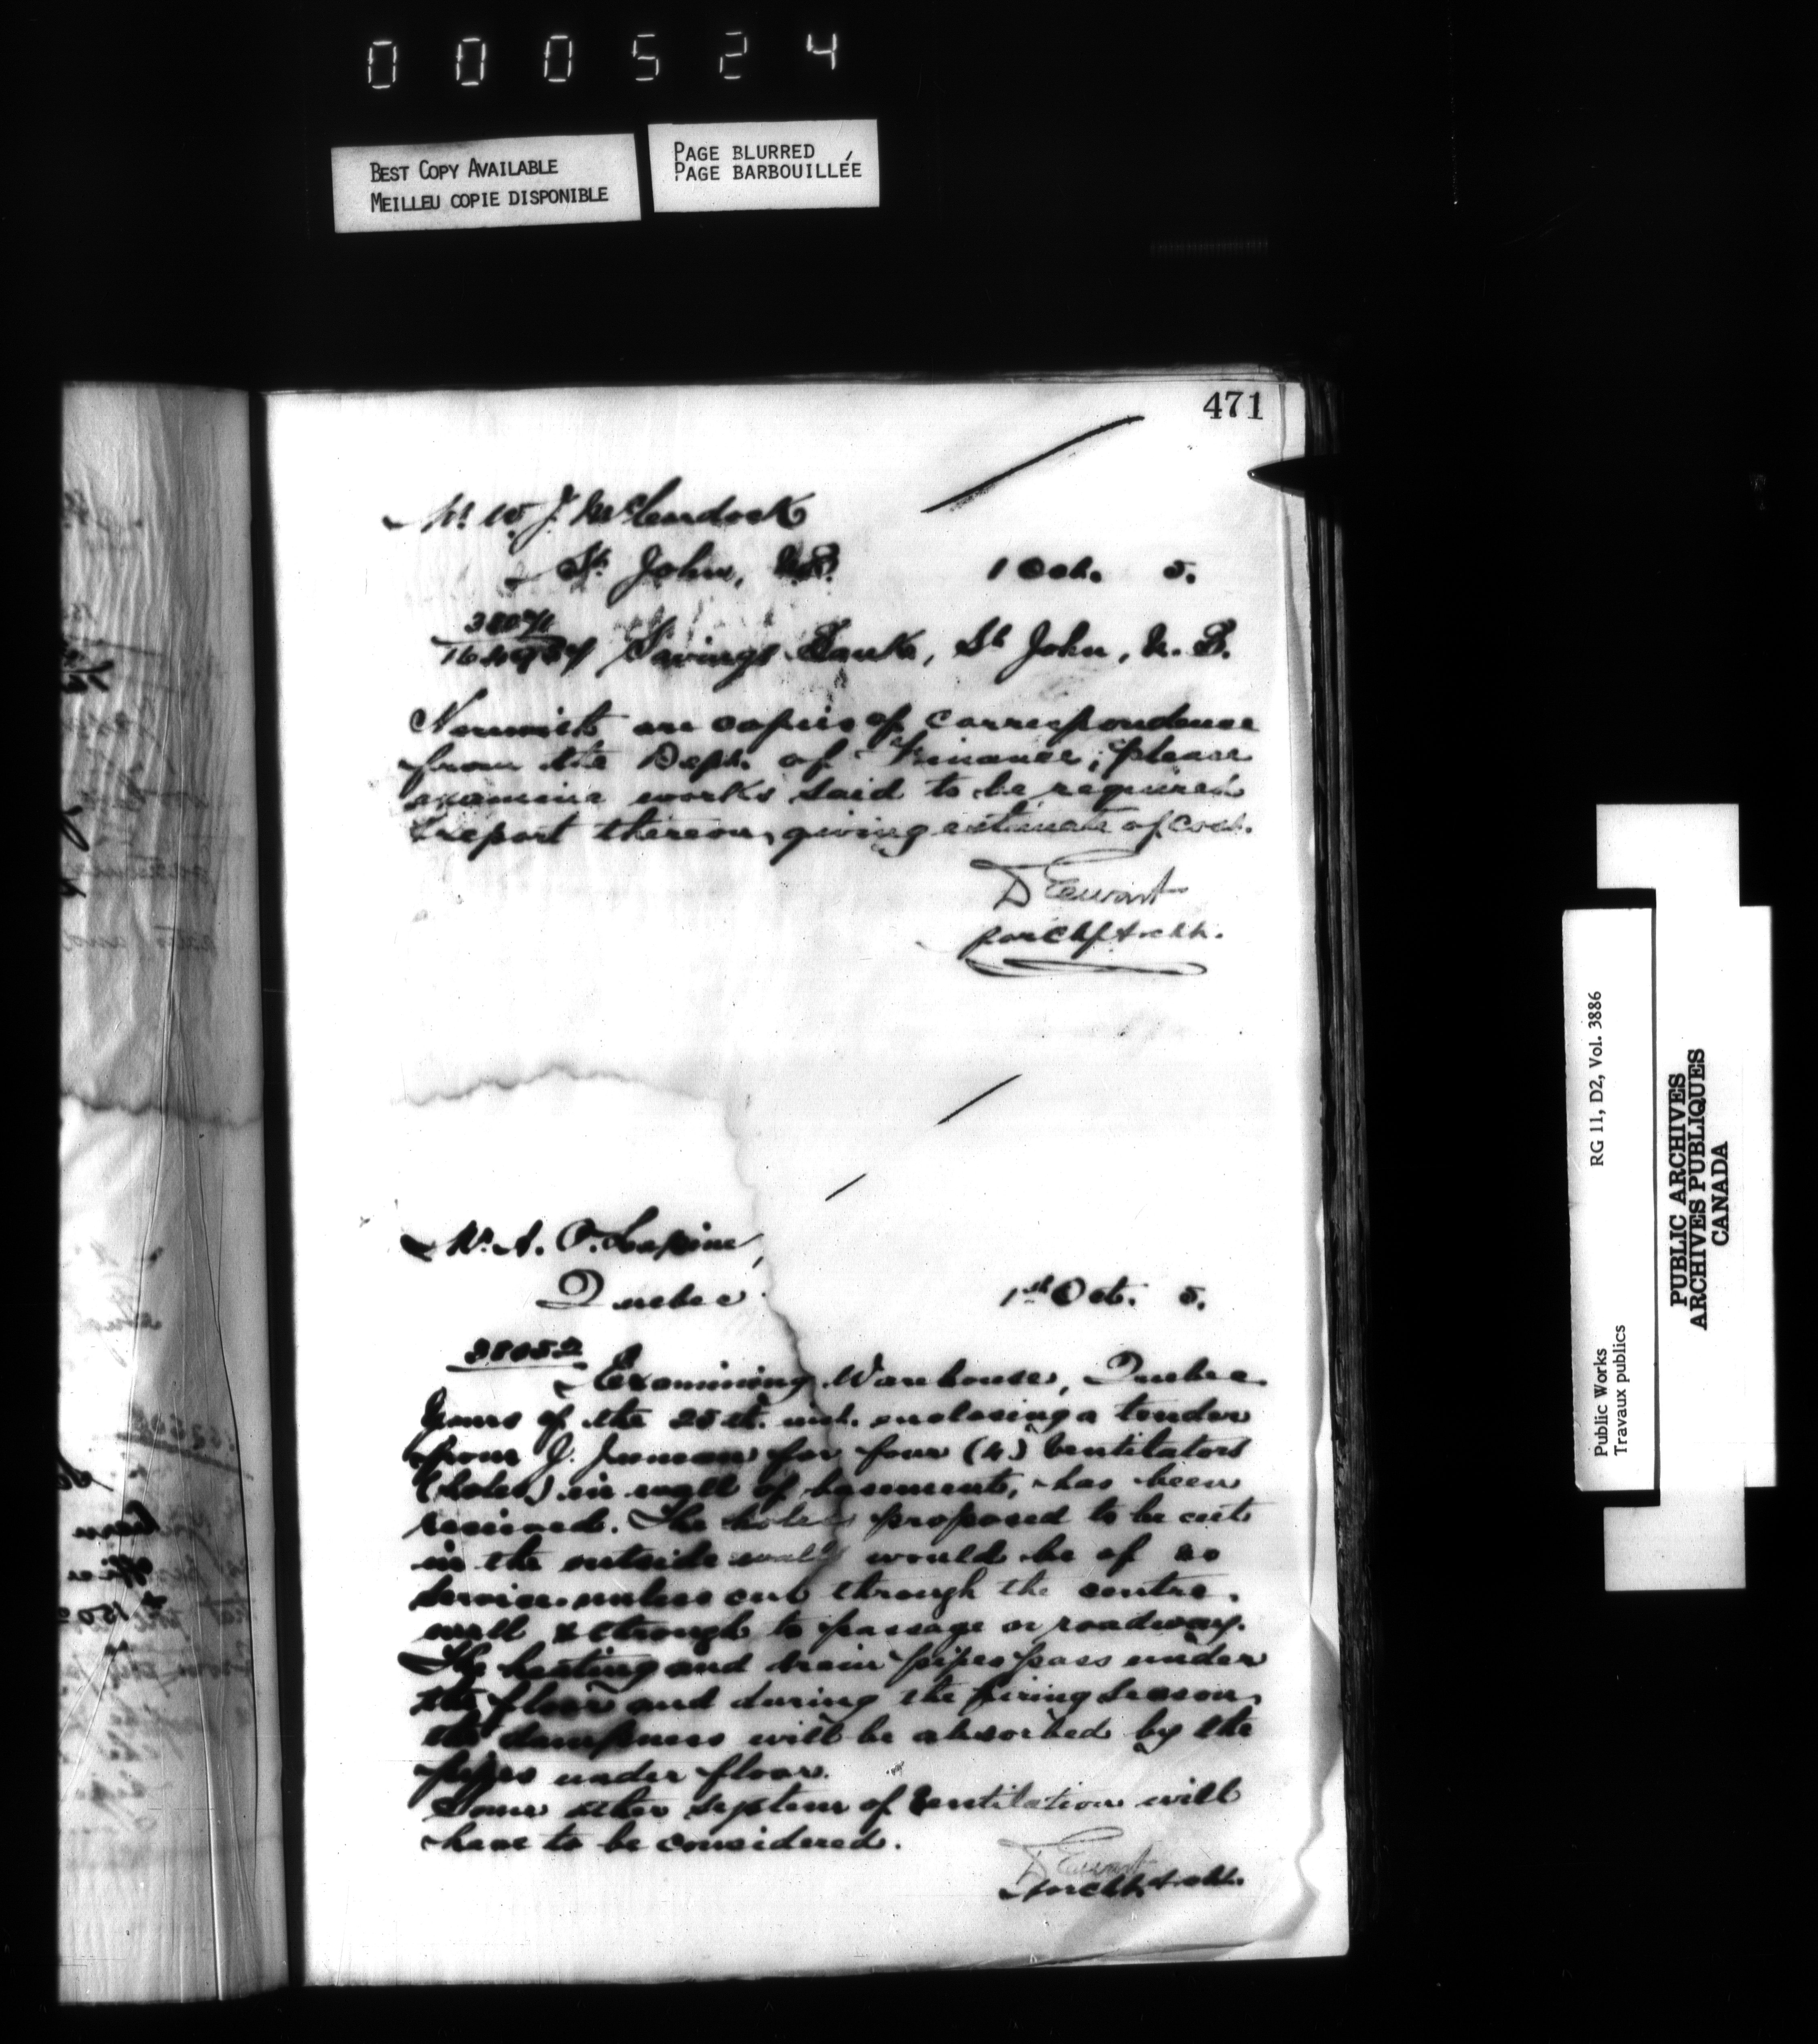 000524
BEST COPY AVAILABLE
MEILLEU COPIE DISPONIBLE
PAGE BLURRED
PAGE BARBOUILLÉE
471
Mr W. J.
St. John, N.B. 1 Oct. 5.
Savings Bank, St John, N. B.
Herewith are copies of correspondence
from the Dept. of Finance; please
examine works said to be required
& report thereon, giving estimate of cost.
D Ewart
for Chf Archt.
Mr. A. O. Lapine,
Quebec. 1st Oct. 5.
Examining Warehouse, Quebec
Yours of the 25th. inst. enclosing a tender
from J. for four (4) ventilators
(holes) in wall of basement, has been
received. The holes proposed to be cut
in the outside walls would be of no
service unless cut through the centre
wall & through to passage or roadway.
The heating and drain pipes pass under
the floor and during the firing season,
the dampness will be absorbed by the
pipes under floor.
Some other system of ventilation will
have to be considered.
D Ewart
for Chf. Archt.
Public Works RG 11, D2, Vol. 3886
Travaux publics
PUBLIC ARCHIVES
ARCHIVES PUBLIQUES
CANADA